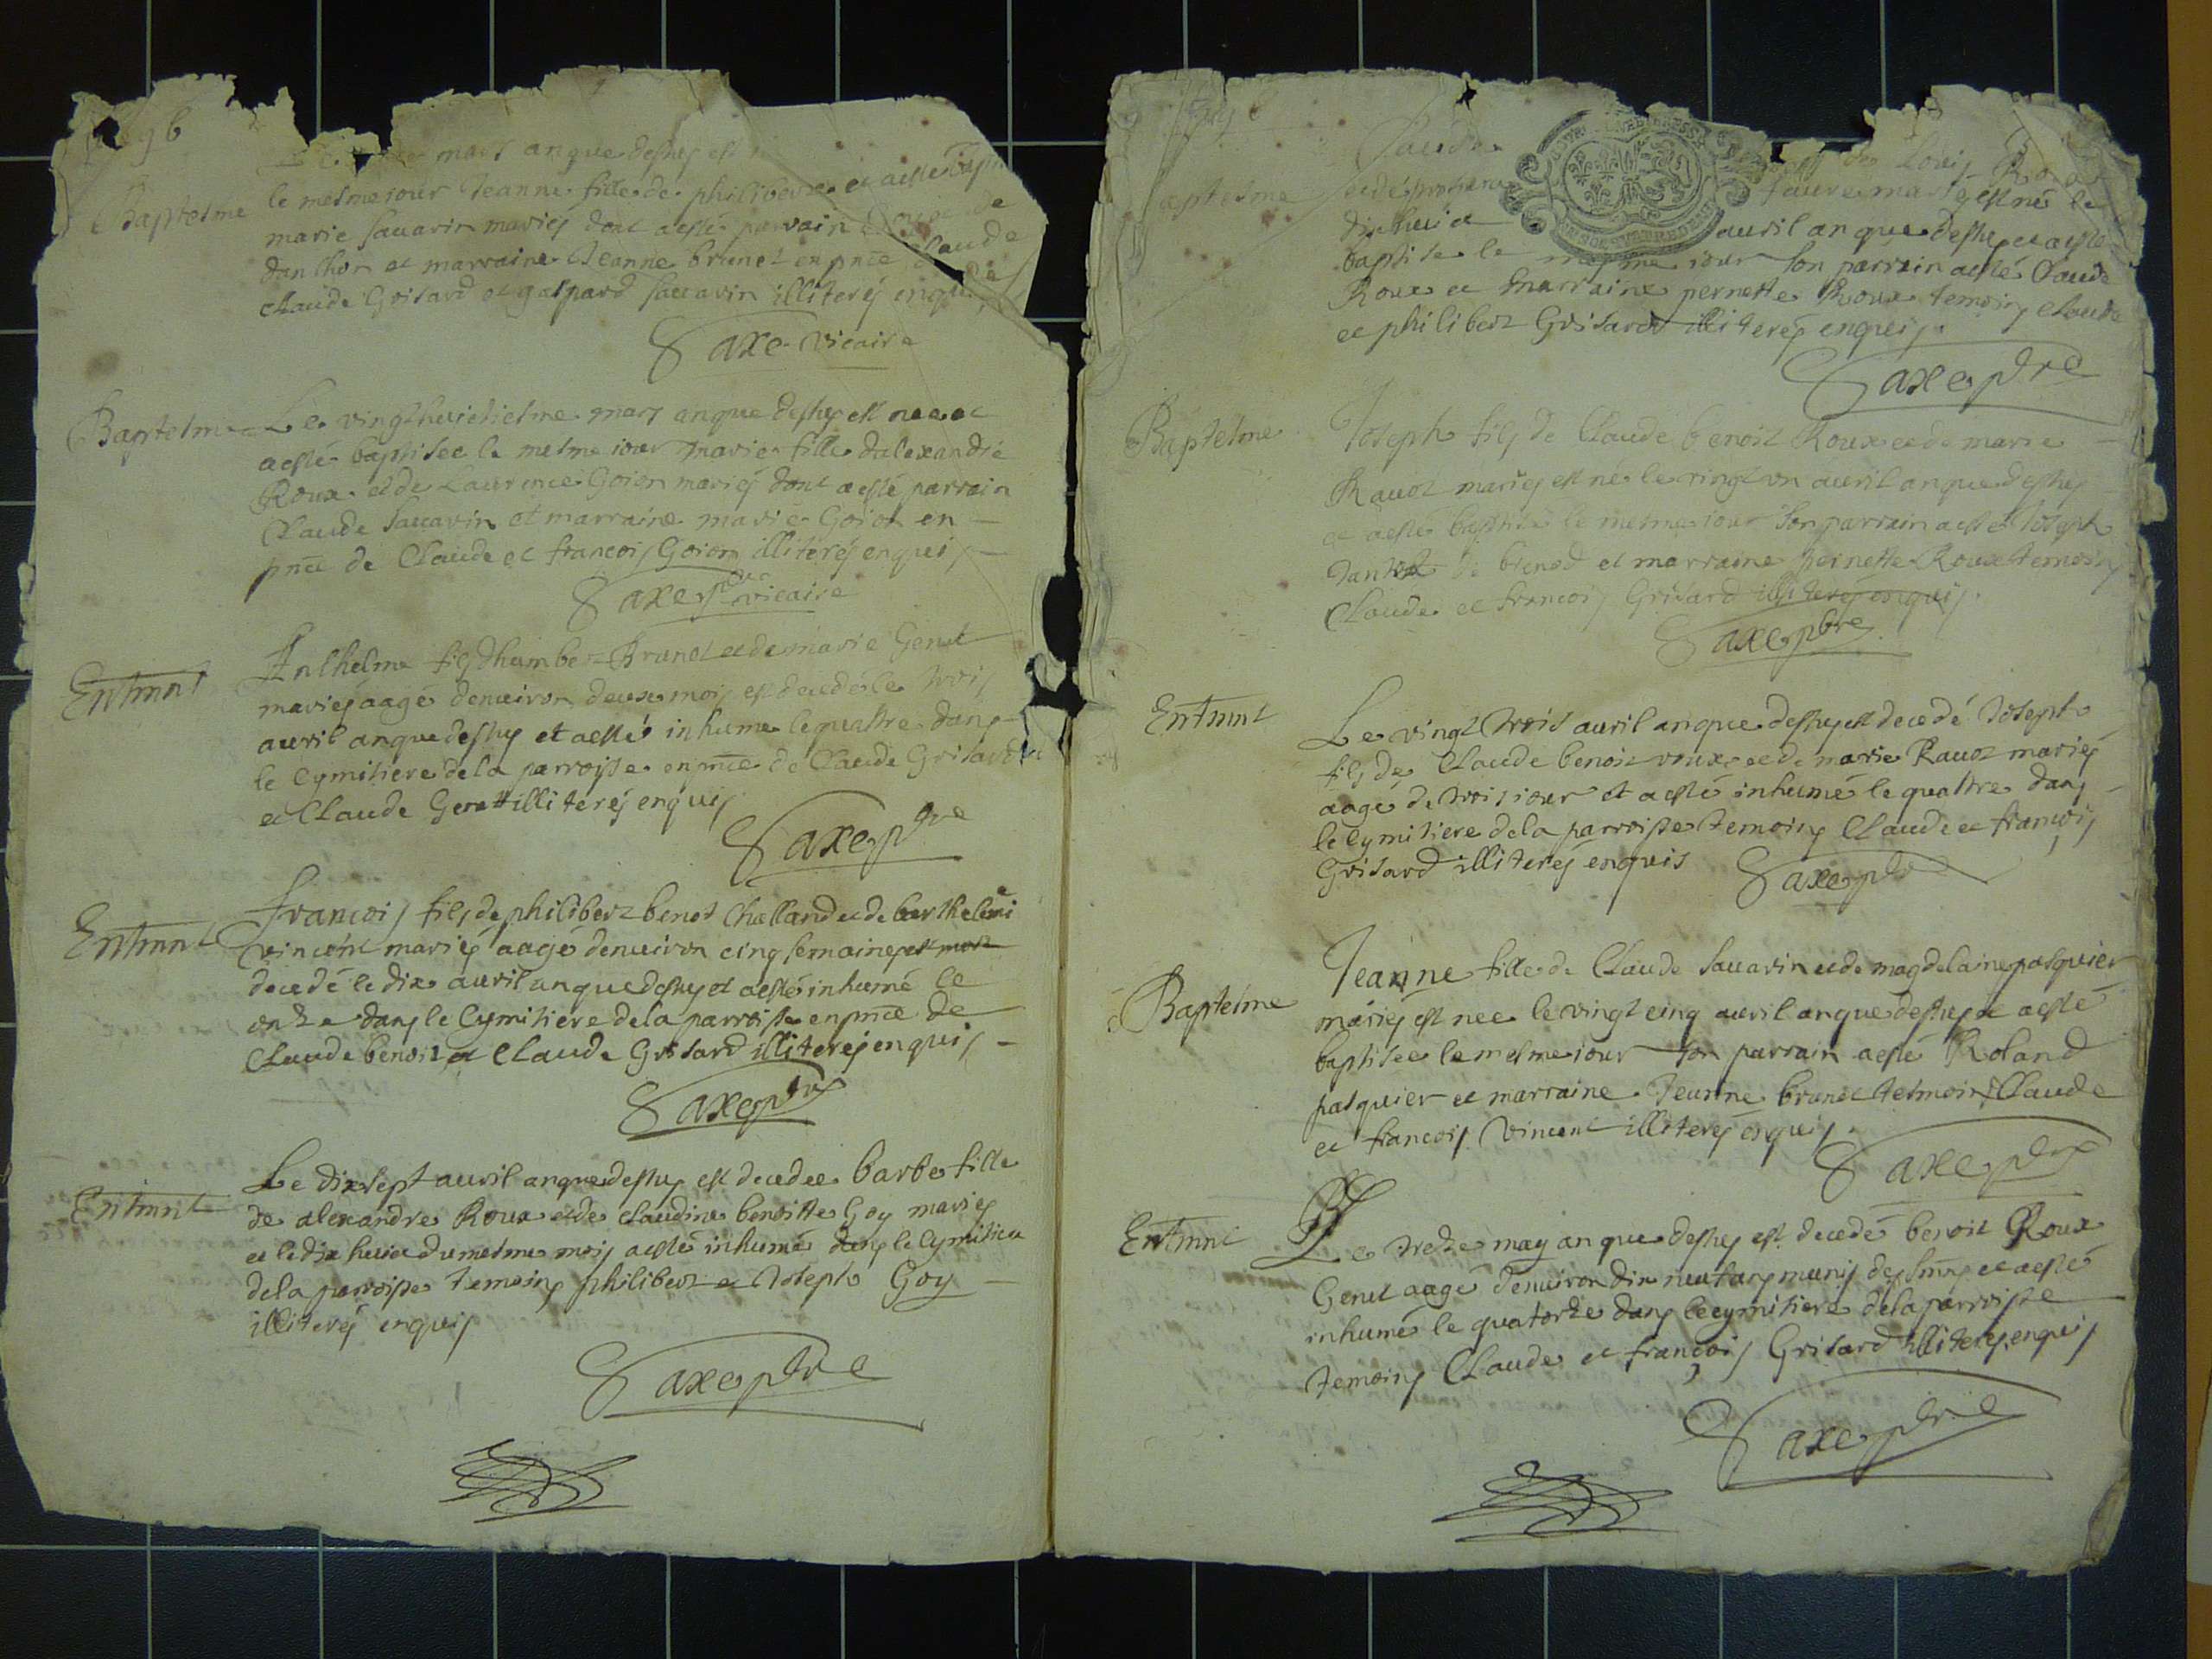 mars an que dessus est
Baptesme le mesme jour Jeanne fille de philibert et a esté
marie Sauarin mariés dont a esté parrain
danthon et marraine Jeanne brunet en pñce Claude
Claude Grisard et gaspard Sauarin illiterés enquis
Saxe vicaire
Baptesme Le vingthuictiesme mars an que dessus est nee et
a esté baptisee le mesme iour marie fille dalexandre
Roux et de Laurence Goion mariés dont a esté parrain
Claude Sauarin et marraine marie Goion en
pñce de Claude et francois Goion illiterés enquis
Saxe pbre vicaire
Entmnt Anthelme fils dhumbert Brunet et de marie Genet
mariés aagé denuiron deux mois est decedé le trois
auril an que dessus et a esté inhumé le quattre dans
le Cymitiere de la parroisse en pñce de Claude Grisard
et Claude Genet illiterés enquis
Saxe pbre
Entmnt francois fils de philibert benoit Challand et de barthelemie
vincent mariés aagé denuiron cinq semaines est mort
decedé le dix auril an que dessus et a esté inhumé le
onze dans le Cymitiere de la parroisse en pñce de
Claude benoit et Claude Grisard illiterés enquis
Saxe pbre
Entmnt Le dixsept auril an que dessus est decedee barbe fille
de alexandre Roux et de Claudine benoitte Goy mariés
et le dix huict du mesme mois a esté inhumée dans le Cymitiere
de la parroisse temoins philibert et Joseph Goy
illiterés enquis
Saxe pbre
Claude de Louis Roux
Baptesme et de mariés est né le
dixhuict auril an que dessus et a esté
baptisé le mesme iour son parrain a esté Claude
Roux et marraine pernette Roux temoins Claude
et philibert Grisard illiterés enquis
Saxe pbre
Baptesme Joseph fils de Claude benoit Roux et de marie
Rauot mariés est né le vingt un auril an que dessus
et a esté baptisé le mesme iour son parrain a esté Joseph
de brenod et marraine pernette Roux temoins
Claude et francois Grisard illiterés enquis
Saxe pbre
Entmnt Le vingt trois auril an que dessus est decedé Joseph
fils de Claude benoit roux et de marie Rauot mariés
aagé de trois iour et a esté inhumé le quattre dans
le Cymitiere de la parroisse temoins Claude et françois
Grisard illiterés enquis Saxe pbre
Baptesme Jeanne fille de Claude Sauarin et de magdelaine pasquier
mariés est nee le vingt cinq auril an que dessus et a esté
baptisee le mesme iour son parrain a esté Roland
pasquier et marraine Jeanne brunet tesmoins Claude
et francois Vincent illiterés enquis
Saxe pbre
Entmnt Le treze may an que dessus est decedé benoit Roux
Genet aagé denuiron dix neuf ans munis des Smñs et a esté
inhumé le quatorze dans le cymitiere de la parroisse
temoins Claude et françois Grisard illiterés enquis
Saxe pbre